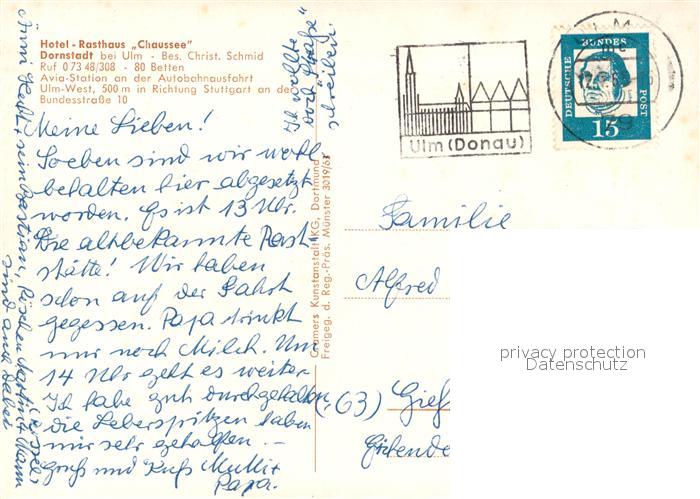 Hotel - Rasthaus „Chaussee"
Dornstadt bei Ulm - Bes. Christ. Schmid
Ruf 0 73 48/308 - 80 Betten
Avia-Station an der Autobahnausfahrt
Ulm-West, 500 m in Richtung Stuttgart an der
Bundesstraße 10
Meine Lieben!
Soeben sind wir wohl
behalten hier abgesetzt
worden. Es ist 13 Uhr.
Die altbekannte Rast
stätte! Wir haben
schon auf der Fahrt
gegessen. Papa trinkt
nur noch Milch. Um
14 Uhr geht es weiter
Ich habe gut durchgehalten
die Leberspritzen haben
mir sehr geholfen. -
Gruß und Kuß Mutti +
Papa.
Ich wollte
schreiben.
sind auch dabei
Cramers Kunstanstalt KG, Dortmund
Freigeg. d. Reg.-Präs. Münster 3019/63
Ulm (Donau)
DEUTSCHE
BUNDES
POST
15
Familie
Alfred
(63) Gieß
privacy protection
Datenschutz